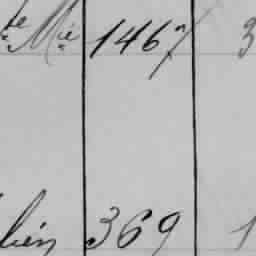 te Mié 1467 3
lién 369 1